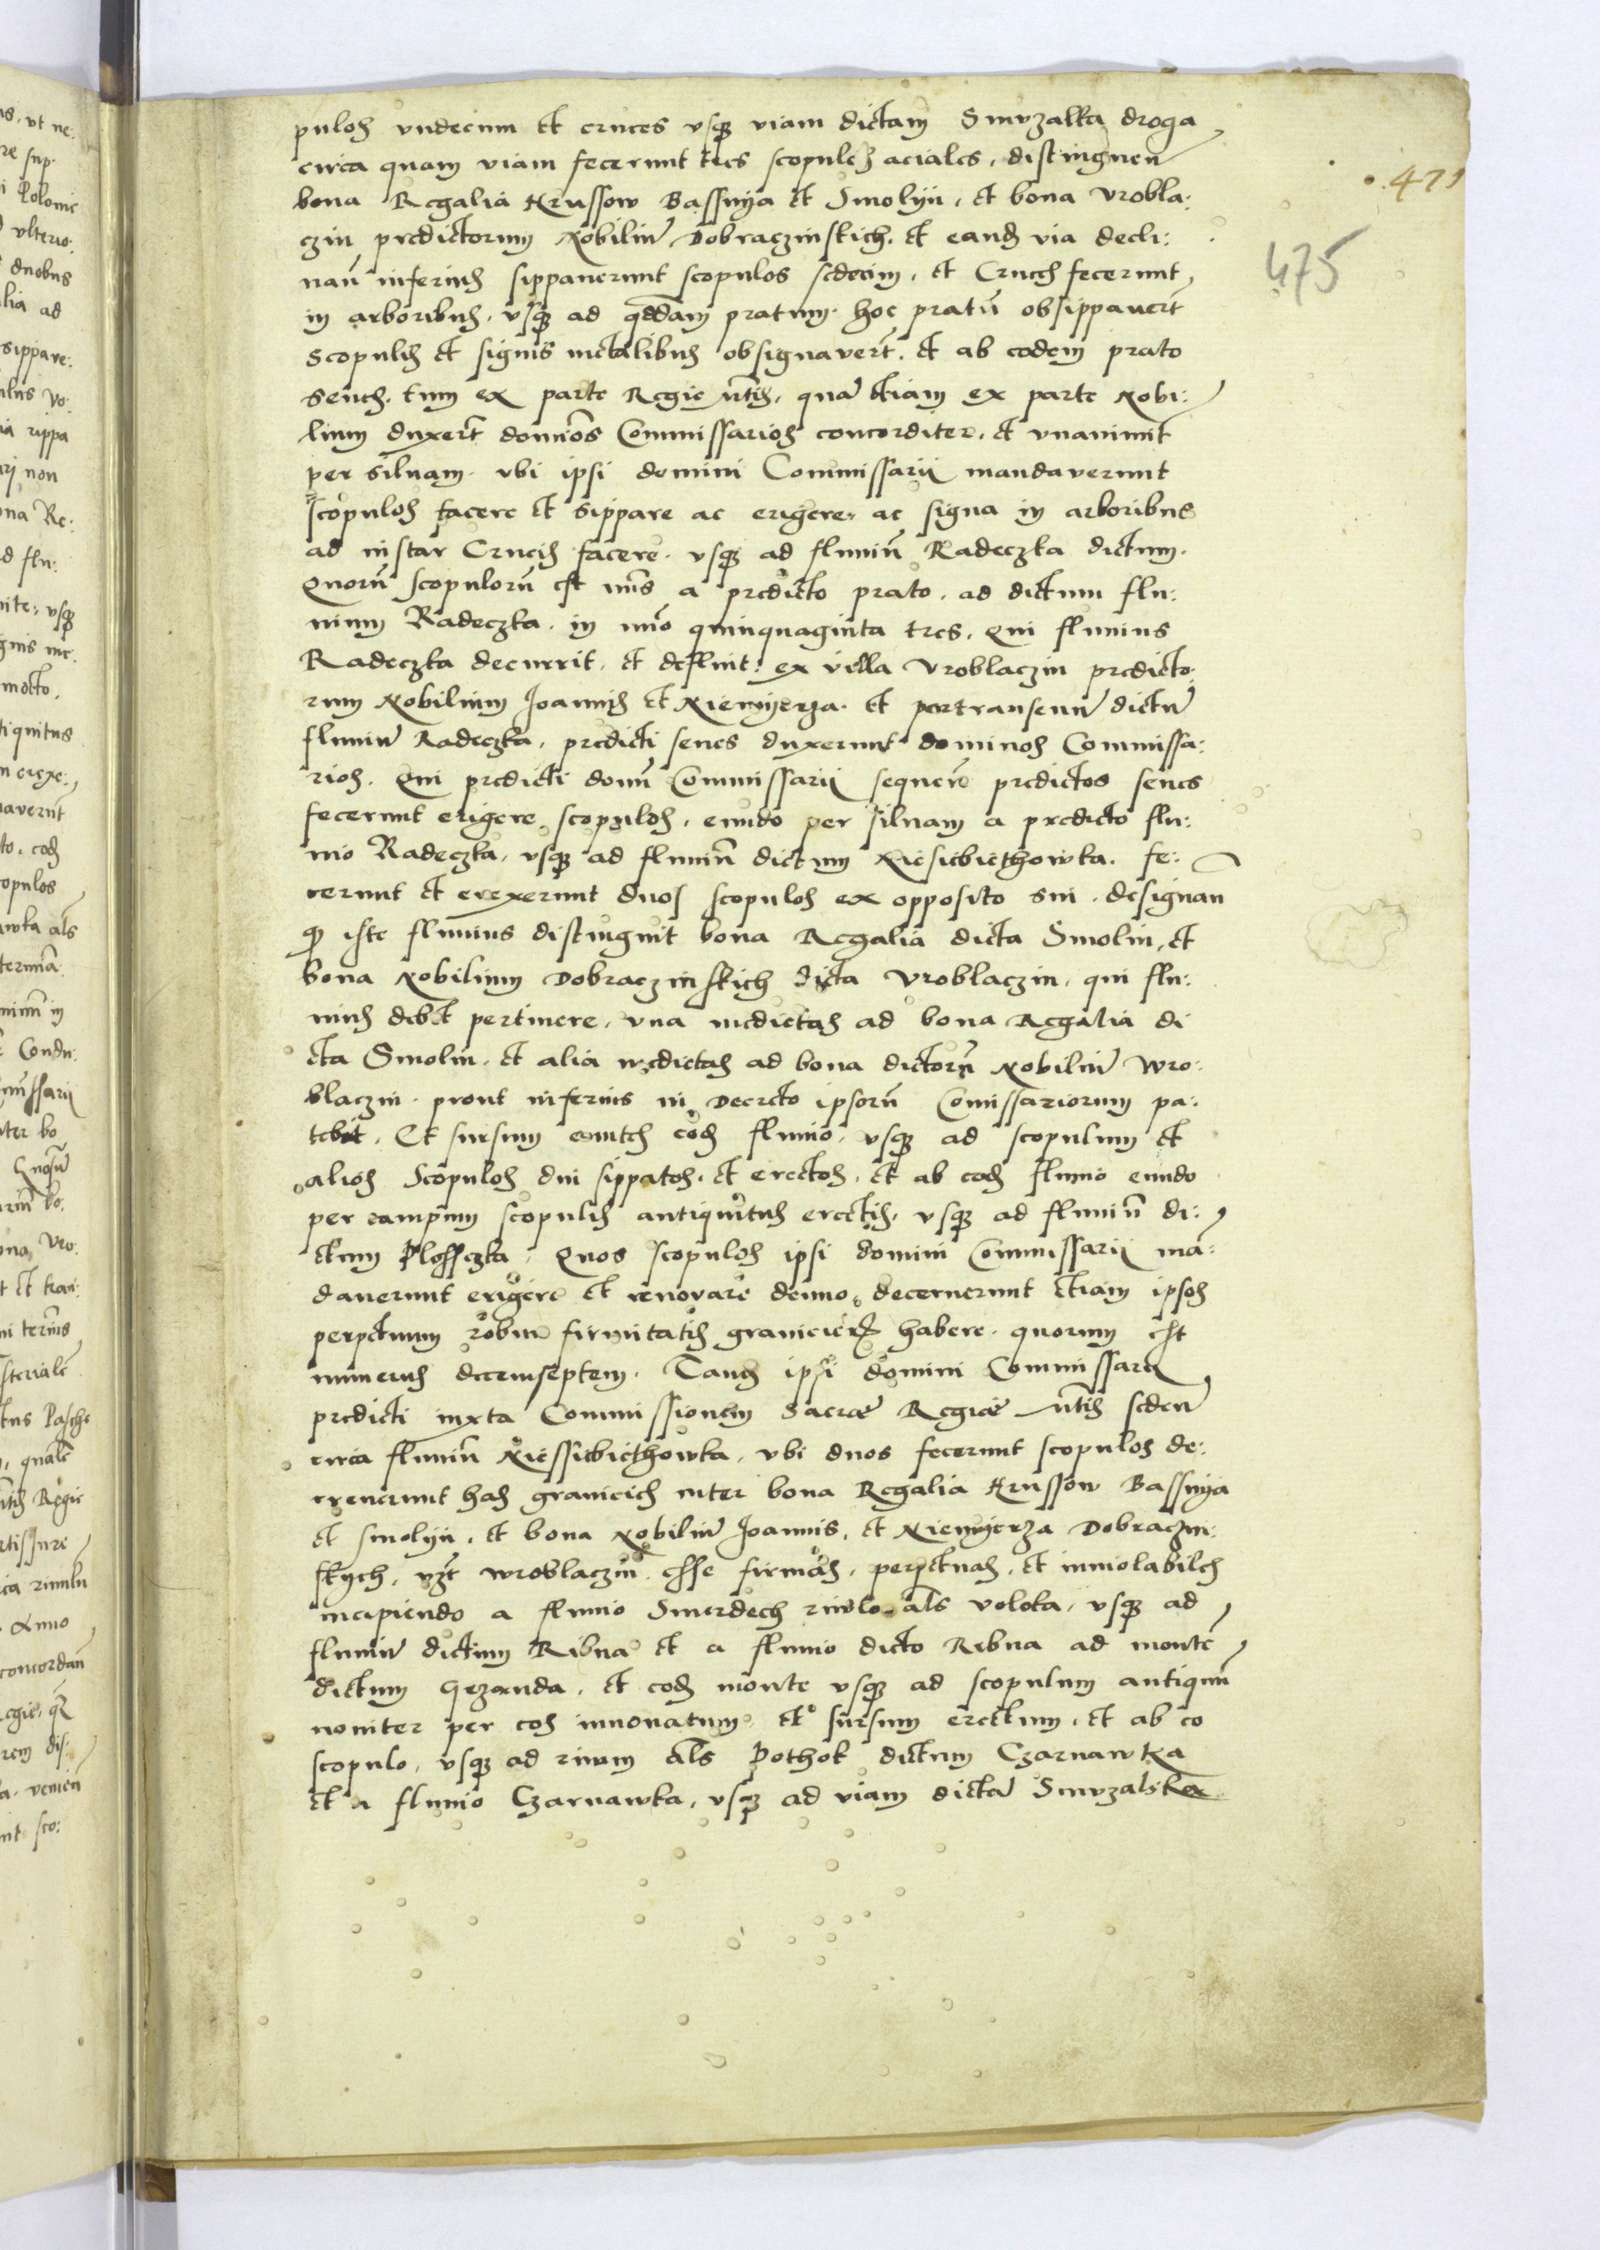 pulos vndecim et cruces vsq viam dictam Smvzalka droga
circa quam viam fecerunt tres scopulos aciales, distinguen
bona Regalia Krussow Bassnya et Smolyn, et bona vrobla:
czin predictorum Nobiliu Dobraczinskich. et eand via decli:
nan inferius sippauerunt scopulos sedecim, et Cruces fecerunt
in arboribus, vsq ad qdam pratum. hoc pratu obsippauert
scopulis et signis metalibus obsignavert. et ab eodem prato
senes. tum ex parte Regie mtis, qua etiam ex parte Nobi:
lium duxert dominos Commissarios concorditer, et vnanimit
per siluam. vbi ipsi domini Commissarii mandaverunt
scopulos facere et sippare ac erigere, ac signa in arboribus
ad instar Crucis facere. vsq ad fluuiu Radeczka dictum.
Quoru scopuloru est nus a predicto prato. ad dictum flu:
uium Radeczka. in nuo quinquaginta tres. qui fluuius
Radeczka decurrit, et defluit: ex villa Vroblaczin predicto
rum Nobilium Joannis et Niemyerza. et pertranseun dictu
fluuiu Radeczka, predicti senes duxerunt dominos Commissa:
rios. Qui predicti domi Commissarii sequen predictos senes
fecerunt erigere scopulos, eundo per siluam a predicto flu:
uio Radeczka, vsq ad fluuiu dictum Niesiebiethowka. fe:
cerunt et erexerunt duos scopulos ex opposito sui. designan
q iste fluuius distinguit bona Regalia dicta Smolin, et
bona Nobilium Dobraczinskich dicta Vroblaczin, qui flu:
uius debet pertinere, vna medietas ad bona Regalia di
cta Smolin. et alia medietas ad bona dictoru Nobiliu Wro:
blaczin. prout inferius in Decreto ipsoru Comissariorum pa:
tebit. Et sursum euntes eod fluuio, vsq ad scopulum et
alios Scopulos diu sippatos. et erectos, et ab eod fluuio eundo
per campum scopulis antiquitus erectis, vsq ad fluuiu di:
ctum Plossczka. Quos scopulos ipsi domini Commissarii ma:
dauerunt erigere et renovare denuo, decernerunt etiam ipsos
perpetuum robur firmitatis granicierz habere. quorum est
numerus decemseptem. Tand ipsi domini Commissarii
predicti iuxta Commissionem Sacræ Regiæ mtis seden
circa fluuiu Niessiebiethowka, vbi duos fecerunt scopulos de:
creuerunt has granicies inter bona Regalia Krussow Bassnya
et smolyn, et bona Nobiliu Joannis, et Niemyerza Dobraczin:
skych, vzt wroblaczin esse firmas, perpetuas, et inuiolabiles
incipiendo a fluuio Smerdech riuulo als volota, vsq ad
fluuiu dictum Ribna et a fluuio dicto Ribna ad monte
dictum Grzanda, et eod monte vsq ad scopulum antiquu
nouiter per eos innouatum et sursum erectum, et ab eo
scopulo, vsq ad riuum als Pothok dictum Czarnawka
et a fluuio Czarnawka, vsq ad viam dicta Smvzalska
471
475